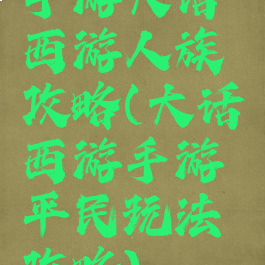 手游大话
西游人族
攻略(大话
西游手游
平民玩法
攻略)